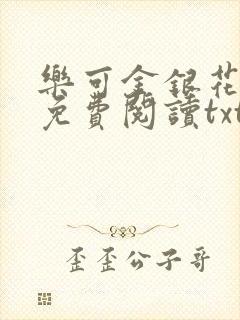 樂可金銀花
免費閱讀txt
歪歪公子哥